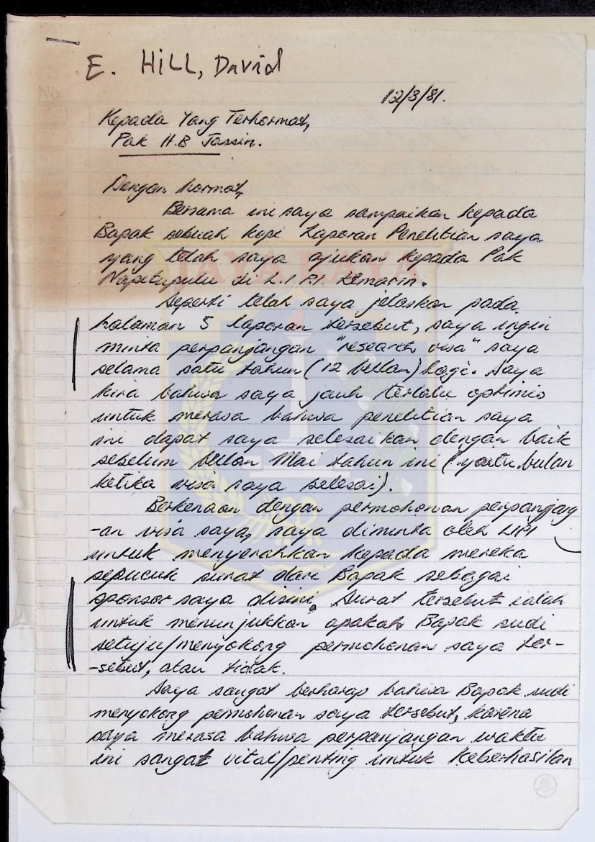 E. HILL, David
12/3/81.
Kepada Yang Terhormat,
Pak H.B Jassin.
Dengan hormat,
Bersama ini saya sampaikan kepada
Bapak sebuah kopi Laporan Penelitian saya
yang telah saya ajukan kepada Pak
Napitupulu di L.I.P.I. kemarin.
Seperti telah saya jelaskan pada
halaman 5 laporan tersebut, saya ingin
minta perpanjangan "research visa" saya
selama satu tahun (12 bulan) lagi. Saya
kira bahwa saya jauh terlalu optimis
untuk merasa bahwa penelitian saya
ini dapat saya selesaikan dengan baik
sebelum bulan Mai tahun ini (yaitu bulan
ketika visa saya selesai).
Berkenaan dengan permohonan perpanjang
-an visa saya, saya diminta oleh LIPI
untuk menyerahkan kepada mereka
sepucuk surat dari Bapak sebagai
sponsor saya disini. Surat tersebut ialah
untuk menunjukkan apakah Bapak sudi
setuju/menyokong permohonan saya ter-
-sebut, atau tidak.
Saya sangat berharap bahwa Bapak sudi
menyokong permohonan saya tersebut, karena
saya merasa bahwa perpanjangan waktu
ini sangat vital/penting untuk keberhasilan